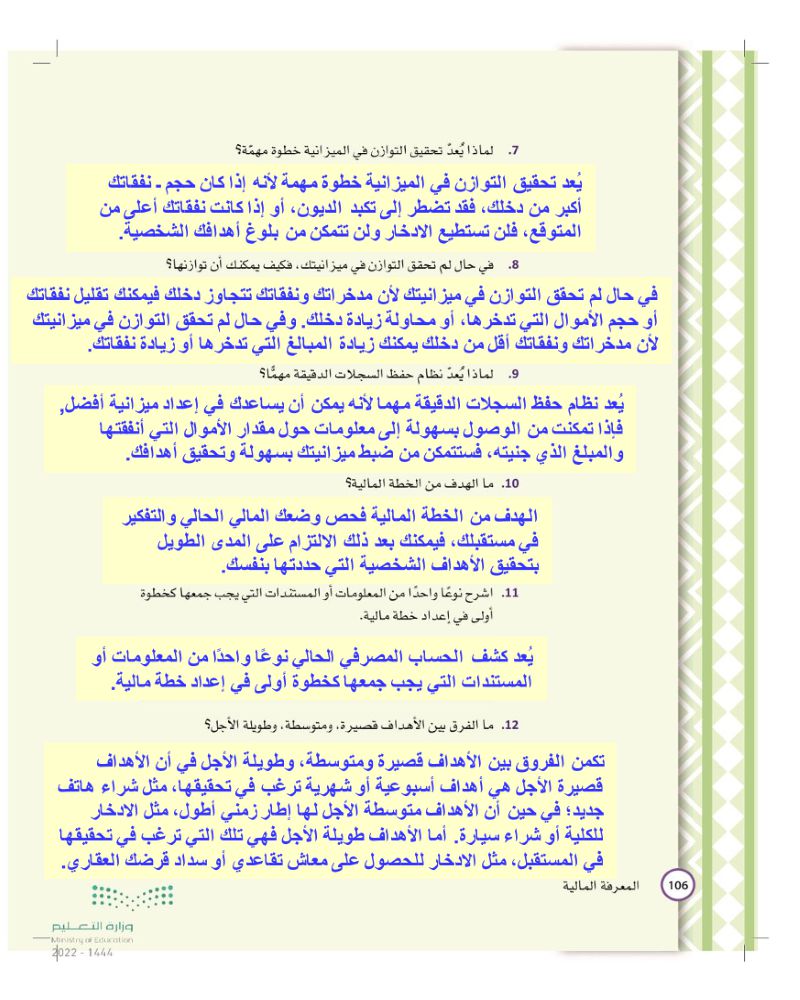 7. لماذا يُعدّ تحقيق التوازن في الميزانية خطوة مهمّة؟
يُعد تحقيق التوازن في الميزانية خطوة مهمة لأنه إذا كان حجم ـ نفقاتك
أكبر من دخلك، فقد تضطر إلى تكبد الديون، أو إذا كانت نفقاتك أعلى من
المتوقع، فلن تستطيع الادخار ولن تتمكن من بلوغ أهدافك الشخصية.
8. في حال لم تحقق التوازن في ميزانيتك، فكيف يمكنك أن توازنها؟
في حال لم تحقق التوازن في ميزانيتك لأن مدخراتك ونفقاتك تتجاوز دخلك فيمكنك تقليل نفقاتك
أو حجم الأموال التي تدخرها، أو محاولة زيادة دخلك. وفي حال لم تحقق التوازن في ميزانيتك
لأن مدخراتك ونفقاتك أقل من دخلك يمكنك زيادة المبالغ التي تدخرها أو زيادة نفقاتك.
9. لماذا يُعدّ نظام حفظ السجلات الدقيقة مهمًّا؟
يُعد نظام حفظ السجلات الدقيقة مهما لأنه يمكن أن يساعدك في إعداد ميزانية أفضل,
فإذا تمكنت من الوصول بسهولة إلى معلومات حول مقدار الأموال التي أنفقتها
والمبلغ الذي جنيته، فستتمكن من ضبط ميزانيتك بسهولة وتحقيق أهدافك.
10. ما الهدف من الخطة المالية؟
الهدف من الخطة المالية فحص وضعك المالي الحالي والتفكير
في مستقبلك، فيمكنك بعد ذلك الالتزام على المدى الطويل
بتحقيق الأهداف الشخصية التي حددتها بنفسك.
11. اشرح نوعًا واحدًا من المعلومات أو المستندات التي يجب جمعها كخطوة
أولى في إعداد خطة مالية.
يُعد كشف الحساب المصرفي الحالي نوعًا واحدًا من المعلومات أو
المستندات التي يجب جمعها كخطوة أولى في إعداد خطة مالية.
12. ما الفرق بين الأهداف قصيرة، ومتوسطة، وطويلة الأجل؟
تكمن الفروق بين الأهداف قصيرة ومتوسطة، وطويلة الأجل في أن الأهداف
قصيرة الأجل هي أهداف أسبوعية أو شهرية ترغب في تحقيقها، مثل شراء هاتف
جديد؛ في حين أن الأهداف متوسطة الأجل لها إطار زمني أطول، مثل الادخار
للكلية أو شراء سيارة. أما الأهداف طويلة الأجل فهي تلك التي ترغب في تحقيقها
في المستقبل، مثل الادخار للحصول على معاش تقاعدي أو سداد قرضك العقاري.
106 المعرفة المالية
وزارة التعليم
Ministry of Education
2022 - 1444